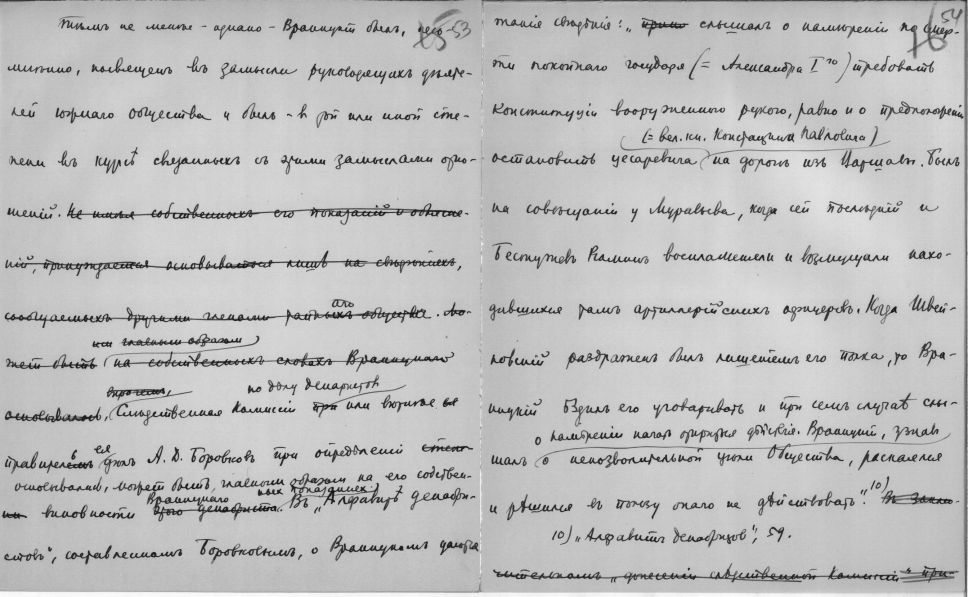 53
Тѣмъ не менѣе - однако - Враницкій былъ, несо-
мнѣнно, посвященъ въ замыслы руководящихъ дѣяте-
лей южнаго общества и былъ - въ той или иной сте-
пени въ курсѣ связанныхъ съ этими замыслами отно-
шеній. Не имѣя собственныхъ его показаній и
ній, принуждается основываться лишь на свѣдѣніяхъ,
аго
сообщаемыхъ другими членами тайныхъ общества. Мо-
или главнымъ образомъ
жетъ быть на собственныхъ словахъ Враницкаго
впрочемъ, по дѣлу декабристовъ
основывалось, Слѣдственная Комиссія при или вѣрнѣе
правитель ея дѣлъ А. Д. Боровковъ при опредѣленіи степе-
основывались, можетъ быть, главнымъ образомъ на его собствен-
Враницкаго ныхъ показаніяхъ
ни виновности этого декабриста. Въ „Алфавитѣ декабри-
стовъ", составленномъ Боровковымъ, о Враницкомъ даются
54
такія свѣдѣнія: „ слышалъ о намѣреніи по смер-
ти покойнаго государя (= Александра I го) требовать
конституціи вооруженною рукою, равно и о предположеніи
(= вел. кн. Константина Павловича)
остановить цесаревича на дорогѣ изъ Варшавы. Былъ
на совѣщаніи у Муравьева, когда сей послѣдній и
Бестужевъ Рюминъ воспламеняли и возмущали нахо-
дившихся тамъ артиллерійскихъ офицеровъ. Когда Швей-
ковскій раздраженъ былъ лишеніемъ его полка, то Вра-
ницкій ѣздилъ его уговаривать и при семъ случаѣ слы-
о намѣреніи начать открытыя дѣйствія. Враницкій, узнавъ
шалъ о непозволительной цѣли Общества, раскаялся
и рѣшился въ пользу онаго не дѣйствовать". 10) Въ заклю-
10) „Алфавитъ декабристовъ", 59.
чительномъ „донесеніи слѣдственной Комиссіи" при-